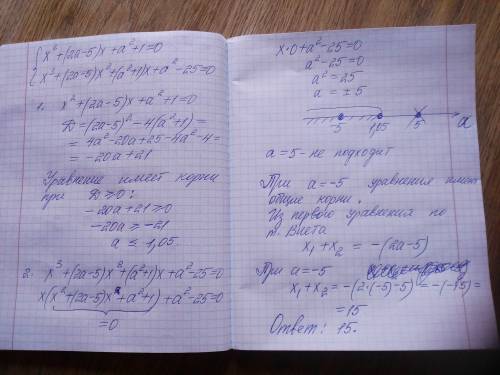 { x² + (2a-5)x + a² + 1 = 0
{ x³ + (2a-5)x² + (a²+1)x + a² - 25 = 0
1. x² + (2a-5)x + a² + 1 = 0
D = (2a-5)² - 4(a²+1) =
= 4a² - 20a + 25 - 4a² - 4 =
= -20a + 21
Уравнение имеет корни
при D ≥ 0:
-20a + 21 ≥ 0
-20a ≥ -21
a ≤ 1,05.
2. x³ + (2a-5)x² + (a²+1)x + a² - 25 = 0
x(x² + (2a-5)x + a² + 1) + a² - 25 = 0
= 0
x·0 + a² - 25 = 0
a² - 25 = 0
a² = 25
a = ±5
-5 1,05 5 a
a = 5 - не подходит
При a = -5 уравнения имеют
общие корни.
Из первого уравнения по
т. Виета
x₁ + x₂ = -(2a-5)
При a = -5
x₁ + x₂ = -(2·(-5)-5) = -(-15) =
= 15
Ответ: 15.